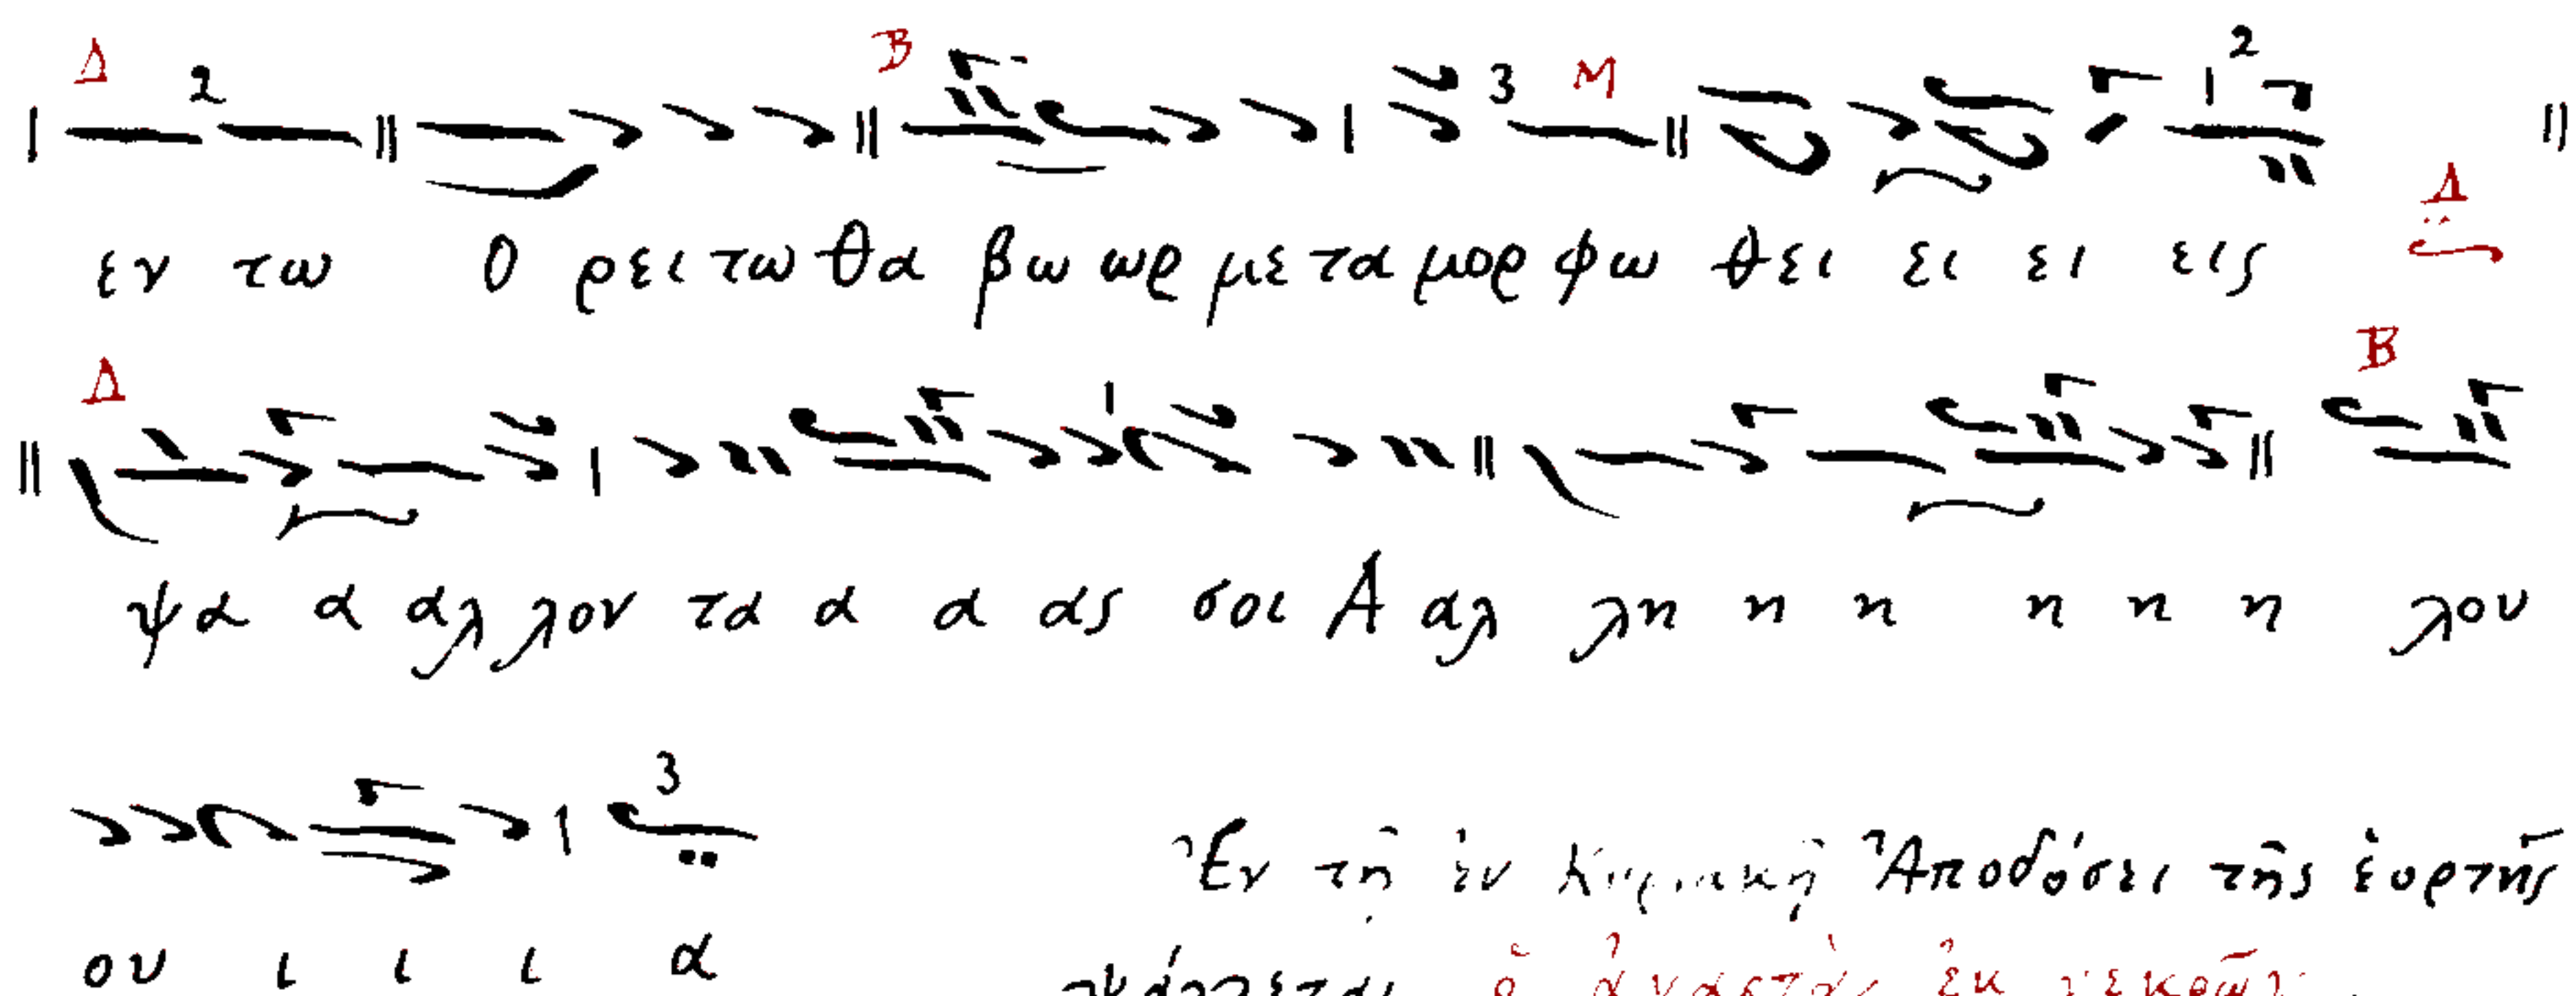 Δ 2 Β 3 Μ 2
εν τω Ο ρει τω θα βω ωρ με τα μορ φω θει ει ει εις Δ
Δ Β
ψα α αλ λον τα α α ας σοι Α αλ λη η η η η η λου
3
ου ι ι ι α
Ἐν τῇ ἐν Κυριακῇ Ἀποδόσει τῆς ἑορτῆς
ψάλλεται ὁ ἀναστὰς ἐκ νεκρῶν.